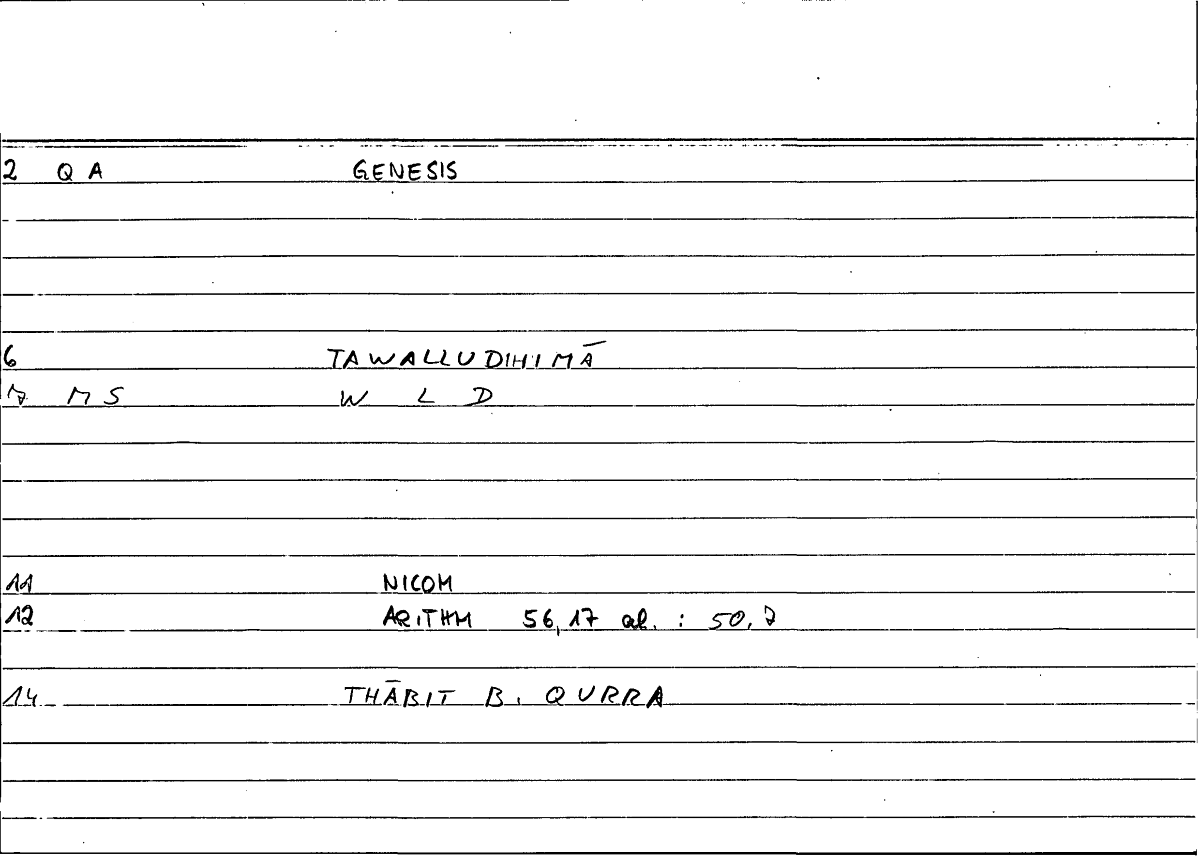 2 Q A GENESIS
6 TAWALLUDIHIMĀ
7 M S W L D
11 NICOM
12 ARITHM 56,17 al. : 50,7
14 THĀBIT B. QURRA